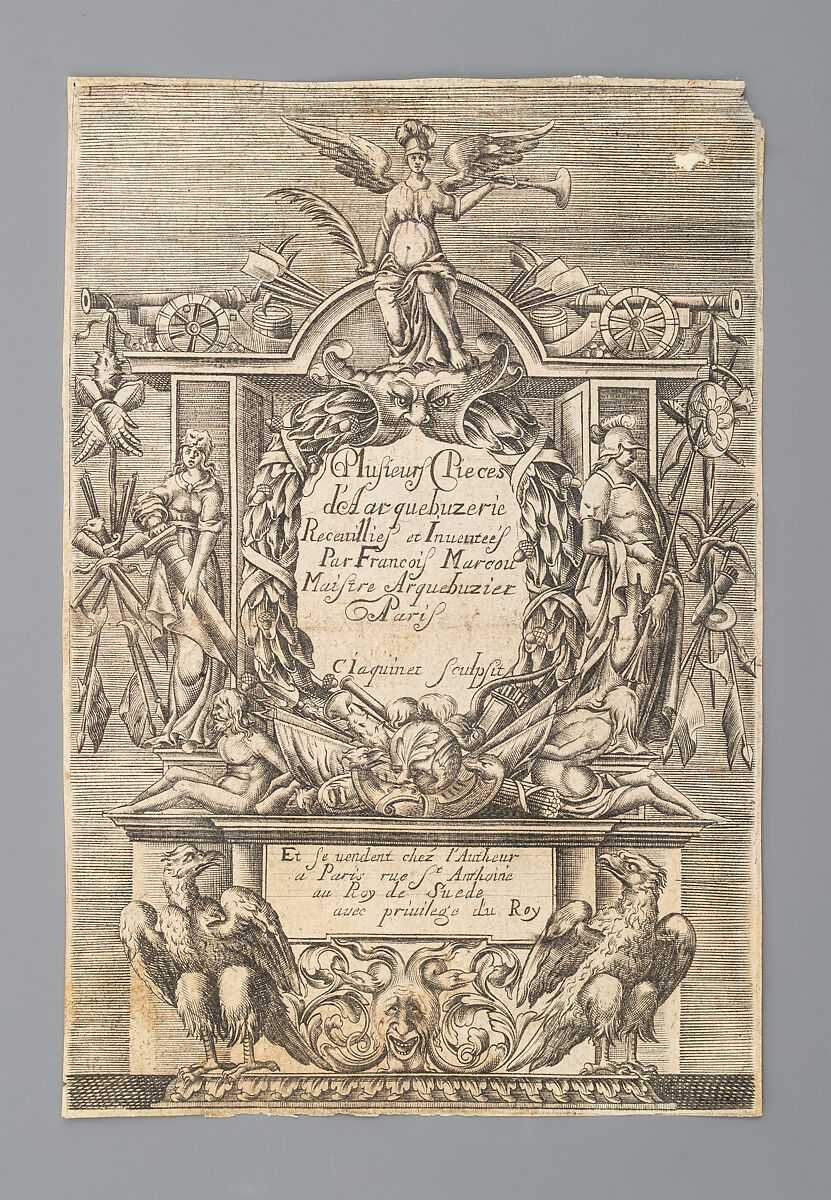 Plusieurs Pieces
d'Arquebuzerie
Receuillies et Inventeés
Par Francois Marcou
Maistre Arquebuzier
A Paris
C Iaquinet sculpsit
Et se vendent chez l'Autheur
a Paris rue St Anthoine
au Roy de Suede
avec privilege du Roy